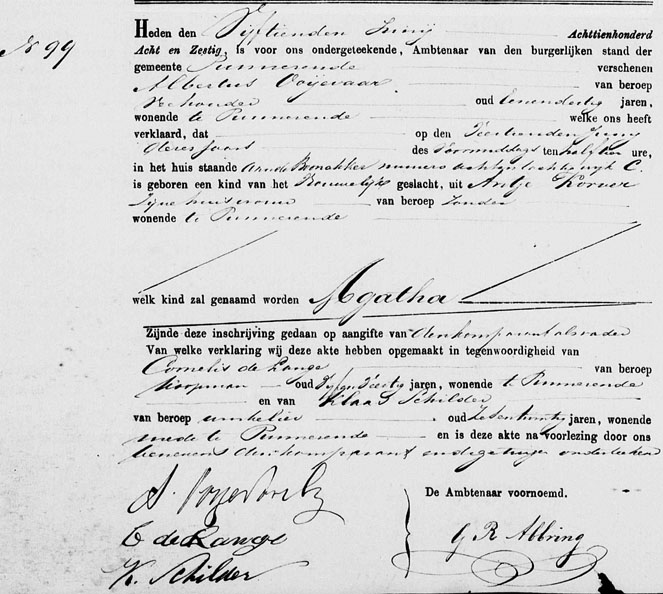 Nº 99
Heden den Vijftienden Junij Achttienhonderd
Acht en Zestig, is voor ons ondergeteekende, Ambtenaar van den burgerlijken stand der
gemeente Purmerende verschenen
Albertus Ooijevaar van beroep
Veehouder oud eenendertig jaren,
wonende te Purmerende welke ons heeft
verklaard, dat op den Veertienden Junij
dezes jaars des Voormiddags ten half tien ure,
in het huis staande aan de numero wijk C.
is geboren een kind van het Vrouwelijk geslacht, uit Antje Korver
Zijne huisvrouw van beroep zonder
wonende te Purmerende
welk kind zal genaamd worden Agatha
Zijnde deze inschrijving gedaan op aangifte van den komparant als vader
Van welke verklaring wij deze akte hebben opgemaakt in tegenwoordigheid van
Cornelis de Lange van beroep
Koopman oud Vijf en Veertig jaren, wonende te Purmerende
en van Klaas Schilder
van beroep winkelier oud jaren, wonende
mede te Purmerende en is deze akte na voorlezing door ons
benevens den komparant en de getuigen onderteekend
De Ambtenaar voornoemd.
C de Lange
G R Abbring
K. Schilder